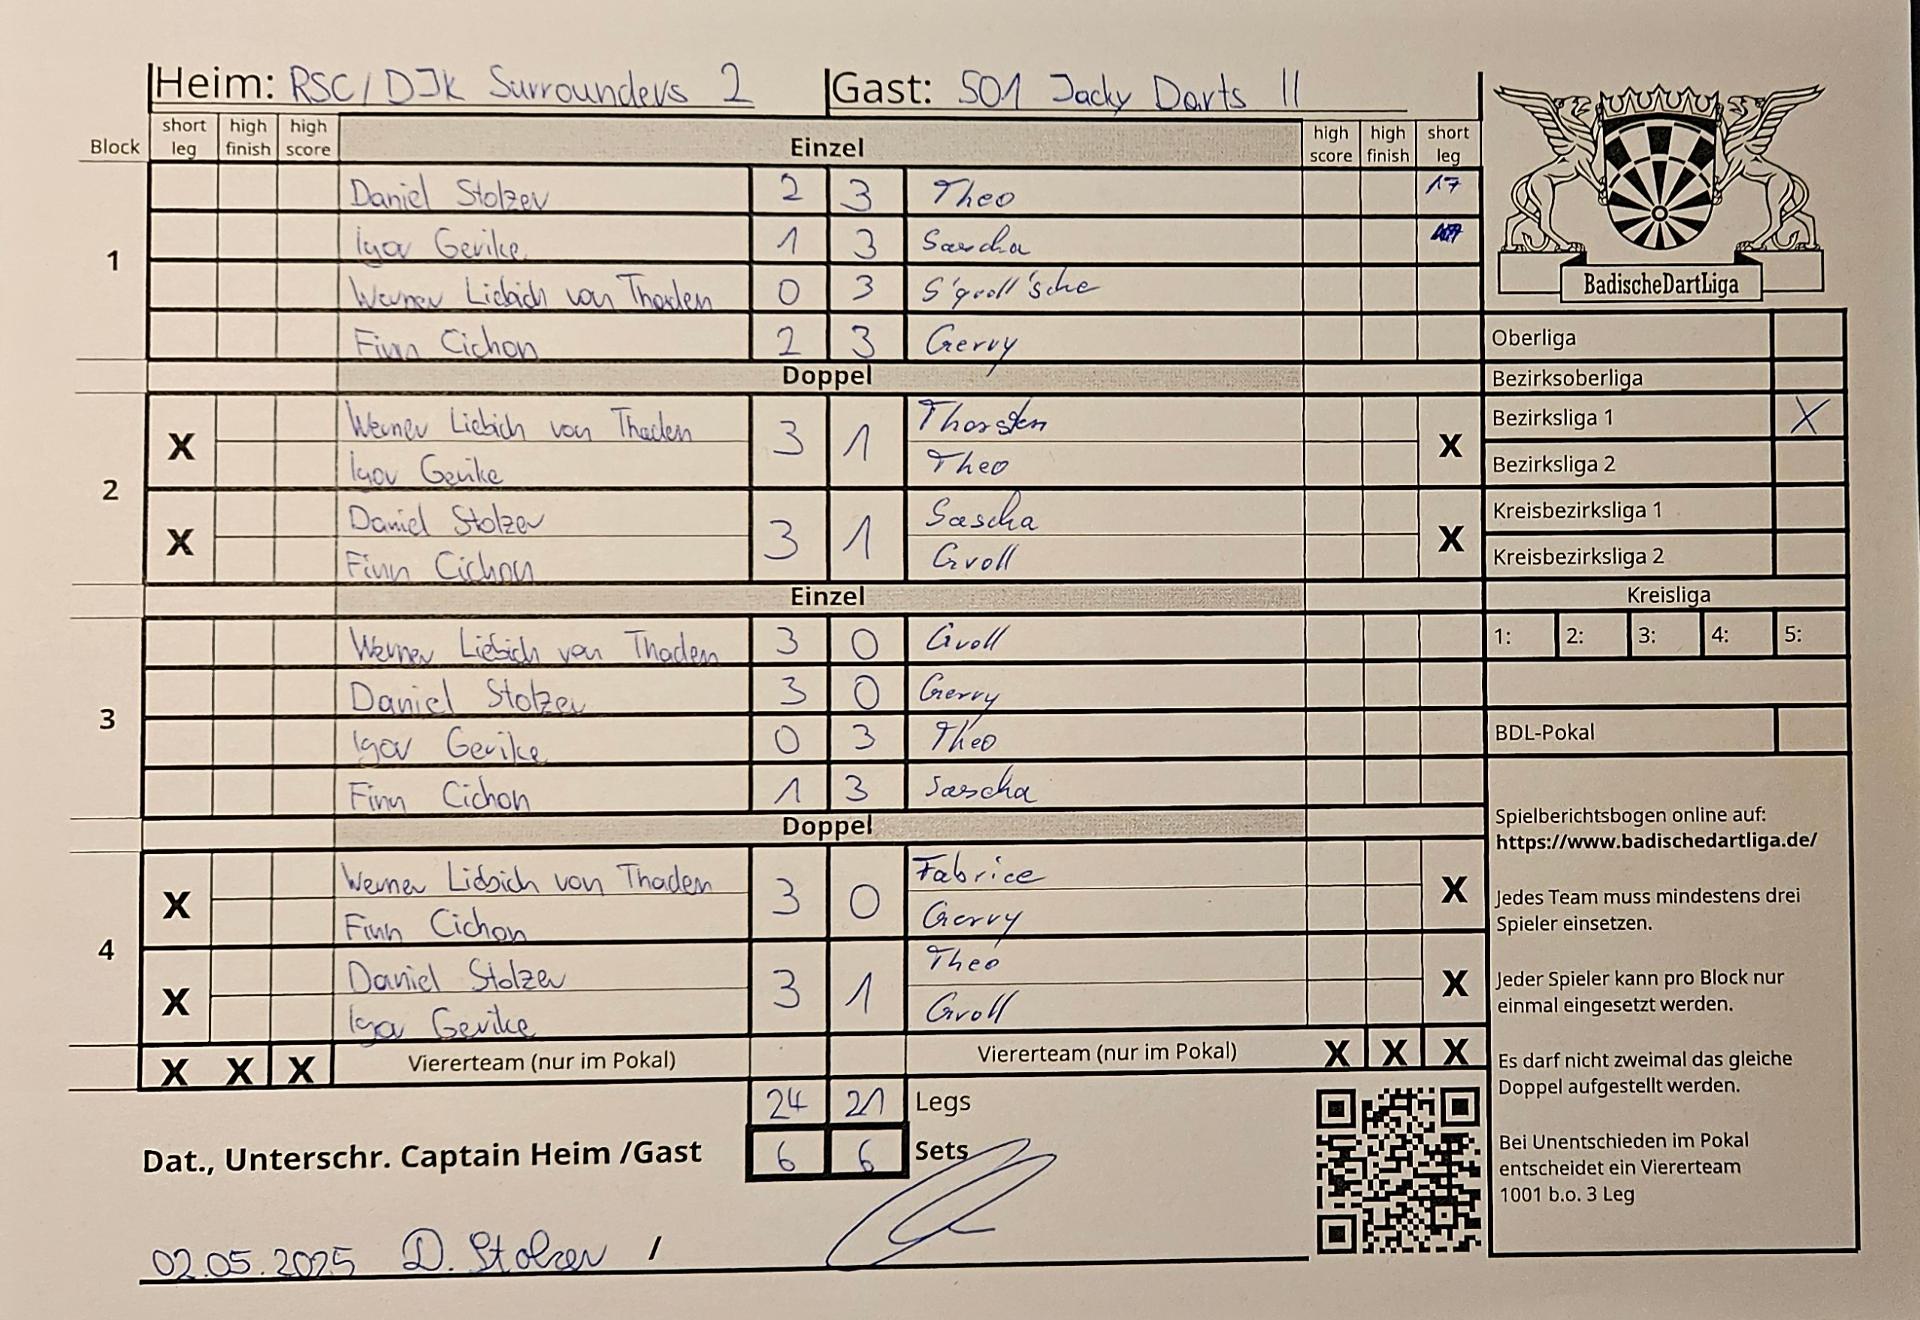 Heim: RSC/DJK Surrounders 2 Gast: 501 Jacky Darts II
Block short leg high finish high score Einzel high score high finish short leg
1
Daniel Stolzer 2 3 Theo 17
Igor Gerike 1 3 Sascha
Werner Liebich von Thaden 0 3 S'groll'sche
Finn Cichon 2 3 Gerry
Doppel
2
X Werner Liebich von Thaden 3 1 Thorsten X
Igor Gerike Theo
X Daniel Stolzer 3 1 Sascha X
Finn Cichon Groll
Einzel
3
Werner Liebich von Thaden 3 0 Groll
Daniel Stolzer 3 0 Gerry
Igor Gerike 0 3 Theo
Finn Cichon 1 3 Sascha
Doppel
4
X Werner Liebich von Thaden 3 0 Fabrice X
Finn Cichon Gerry
X Daniel Stolzer 3 1 Theo X
Igor Gerike Groll
X X X Viererteam (nur im Pokal) Viererteam (nur im Pokal) X X X
24 21 Legs
Dat., Unterschr. Captain Heim /Gast 6 6 Sets
02.05.2025 D. Stolzer /
BadischeDartLiga
Oberliga
Bezirksoberliga
Bezirksliga 1 X
Bezirksliga 2
Kreisbezirksliga 1
Kreisbezirksliga 2
Kreisliga
1: 2: 3: 4: 5:
BDL-Pokal
Spielberichtsbogen online auf:
https://www.badischedartliga.de/
Jedes Team muss mindestens drei
Spieler einsetzen.
Jeder Spieler kann pro Block nur
einmal eingesetzt werden.
Es darf nicht zweimal das gleiche
Doppel aufgestellt werden.
Bei Unentschieden im Pokal
entscheidet ein Viererteam
1001 b.o. 3 Leg